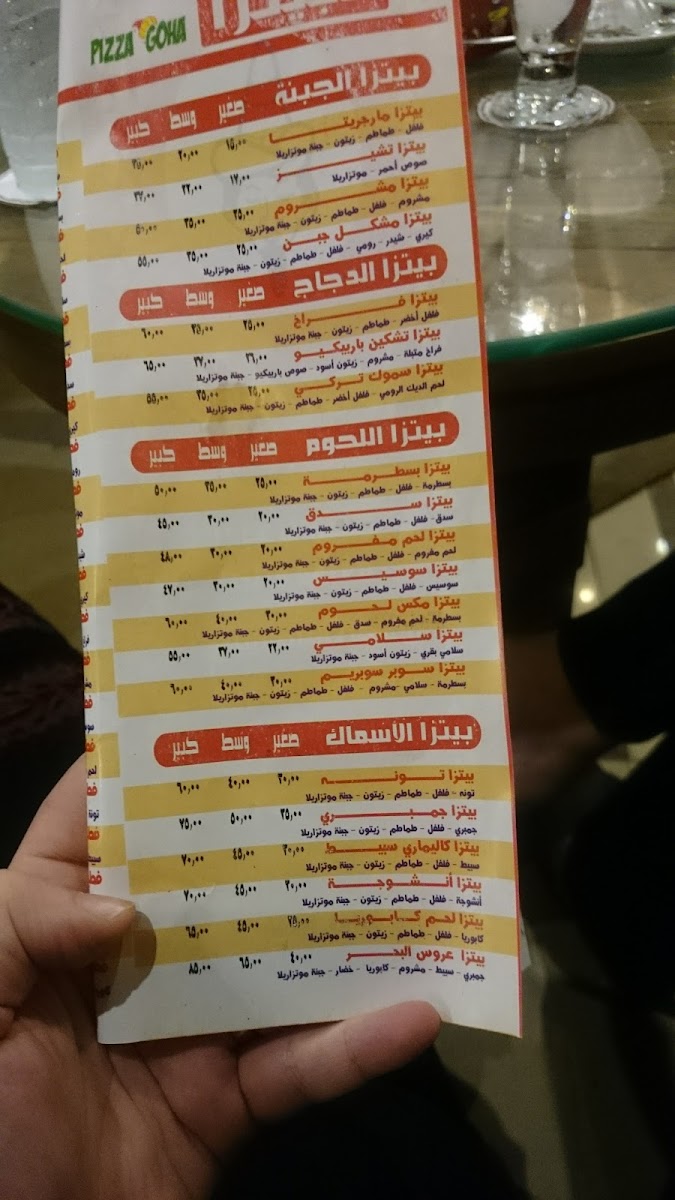 PIZZA GOHA
بيتزا الجبنة صغير وسط كبير
بيتزا مارجريتا ١٥,٠٠ ٢٠,٠٠
فلفل - طماطم - زيتون - جبنة موتزاريلا
بيتزا تشيز ١٧,٠٠ ٢٢,٠٠ ٣٧,٠٠
صوص أحمر - موتزاريلا
بيتزا مشروم ٢٥,٠٠ ٣٥,٠٠
مشروم - فلفل - طماطم - زيتون - جبنة موتزاريلا
بيتزا مشكل جبن ٢٥,٠٠ ٣٥,٠٠ ٥٥,٠٠
كيري - شيدر - رومي - فلفل - طماطم - زيتون - جبنة موتزاريلا
بيتزا الدجاج صغير وسط كبير
بيتزا فراخ ٢٥,٠٠ ٣٥,٠٠ ٦٠,٠٠
فلفل أخضر - طماطم - زيتون - جبنة موتزاريلا
بيتزا تشكين باربيكيو ٢٦,٠٠ ٣٧,٠٠ ٦٥,٠٠
فراخ متبلة - مشروم - زيتون أسود - صوص باربيكيو - جبنة موتزاريلا
بيتزا سموك تركي ٢٥,٠٠ ٣٥,٠٠ ٥٥,٠٠
لحم الديك الرومي - فلفل أخضر - طماطم - زيتون - جبنة موتزاريلا
بيتزا اللحوم صغير وسط كبير
بيتزا بسطرمة ٢٥,٠٠ ٣٥,٠٠ ٥٠,٠٠
بسطرمة - فلفل - طماطم - زيتون - جبنة موتزاريلا
بيتزا سدق ٢٠,٠٠ ٣٠,٠٠ ٤٥,٠٠
سدق - فلفل - طماطم - زيتون - جبنة موتزاريلا
بيتزا لحم مفروم ٢٠,٠٠ ٣٠,٠٠ ٤٨,٠٠
لحم مفروم - فلفل - طماطم - زيتون - جبنة موتزاريلا
بيتزا سوسيس ٢٠,٠٠ ٣٠,٠٠ ٤٧,٠٠
سوسيس - فلفل - طماطم - زيتون - جبنة موتزاريلا
بيتزا مكس لحوم ٣٠,٠٠ ٤٠,٠٠ ٦٠,٠٠
بسطرمة - لحم مفروم - سدق - فلفل - طماطم - زيتون - جبنة موتزاريلا
بيتزا سلامي ٢٢,٠٠ ٣٧,٠٠ ٥٥,٠٠
سلامي بقري - زيتون أسود - جبنة موتزاريلا
بيتزا سوبر سوبريم ٣٠,٠٠ ٤٠,٠٠ ٦٠,٠٠
بسطرمة - سلامي - مشروم - فلفل - طماطم - زيتون - جبنة موتزاريلا
بيتزا الأسماك صغير وسط كبير
بيتزا تونه ٣٠,٠٠ ٤٠,٠٠ ٦٠,٠٠
تونه - فلفل - طماطم - زيتون - جبنة موتزاريلا
بيتزا جمبري ٣٥,٠٠ ٥٠,٠٠ ٧٥,٠٠
جمبري - فلفل - طماطم - زيتون - جبنة موتزاريلا
بيتزا كاليماري سبيط ٣٠,٠٠ ٤٥,٠٠ ٧٠,٠٠
سبيط - فلفل - طماطم - زيتون - جبنة موتزاريلا
بيتزا أنشوجة ٣٠,٠٠ ٤٥,٠٠ ٧٠,٠٠
أنشوجة - فلفل - طماطم - زيتون - جبنة موتزاريلا
بيتزا لحم كابوريا ٢٥,٠٠ ٤٥,٠٠ ٦٥,٠٠
كابوريا - فلفل - طماطم - زيتون - جبنة موتزاريلا
بيتزا عروس البحر ٤٠,٠٠ ٦٥,٠٠ ٨٥,٠٠
جمبري - سبيط - مشروم - كابوريا - خضار - جبنة موتزاريلا